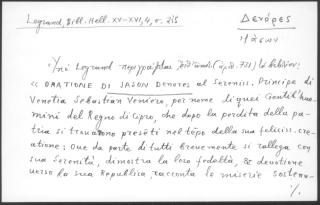 Legrand, Bill. Hell. XV-XVI, 4, σ. 215
Δενόρες
Ἰάσων
Ὑπὸ Legrand περιγράφεται
« ORATIONE DI JASON Denores al Sereniss. Principe di
Venetia Sebastian Veniero, per nome di quei Gentil'huo
mini del Regno di Cipro, che dopo la perdita della pa
tria si trouarono presẽti nel tẽpo della sua feliciss. cre
atione: Oue da parte di tutti brevemente si rallegra con
sua Serenità, dimostra la loro fedeltà, & devotione
verso la sua Republica, racconta le miserie sostenu-
·/.